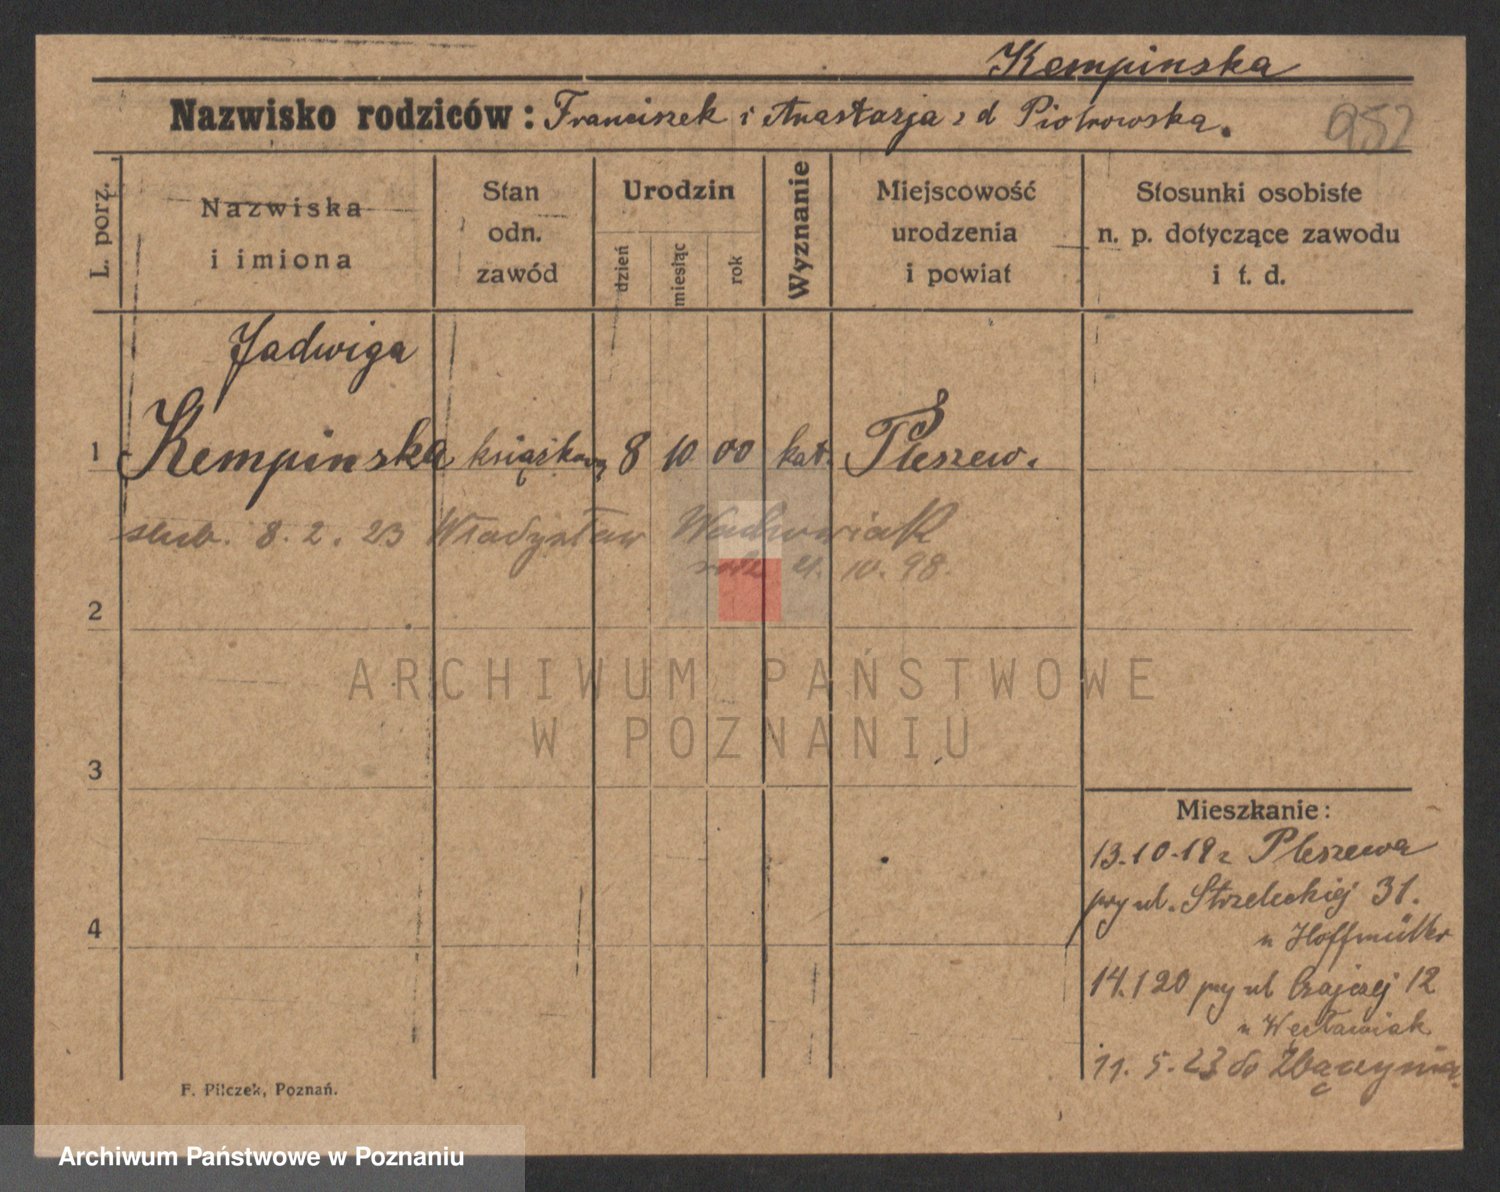 Kempinska
Nazwisko rodziców: Franciszek i Anastazja z d Piotrowska.
952
L. porz.
Nazwiska
i imiona
Stan
odn.
zawód
Urodzin
dzień
miesiąc
rok
Wyznanie
Miejscowość
urodzenia
i powiat
Stosunki osobiste
n. p. dotyczące zawodu
i t. d.
Jadwiga
1 Kempinska książkowy 8 10 00 kat. Pleszew.
slub. 8. 2. 23 Władysław
10. 98.
2
ARCHIWUM PAŃSTWOWE
W POZNANIU
3
Mieszkanie:
13.10.19 z Pleszewa
przy ul. Strzeleckiej 31.
u Hoffmüller
4
14.1 20 przy ul 12
u Węcławiak
11. 5. 23 do Zbąszynia.
F. Pilczek, Poznań.
Archiwum Państwowe w Poznaniu